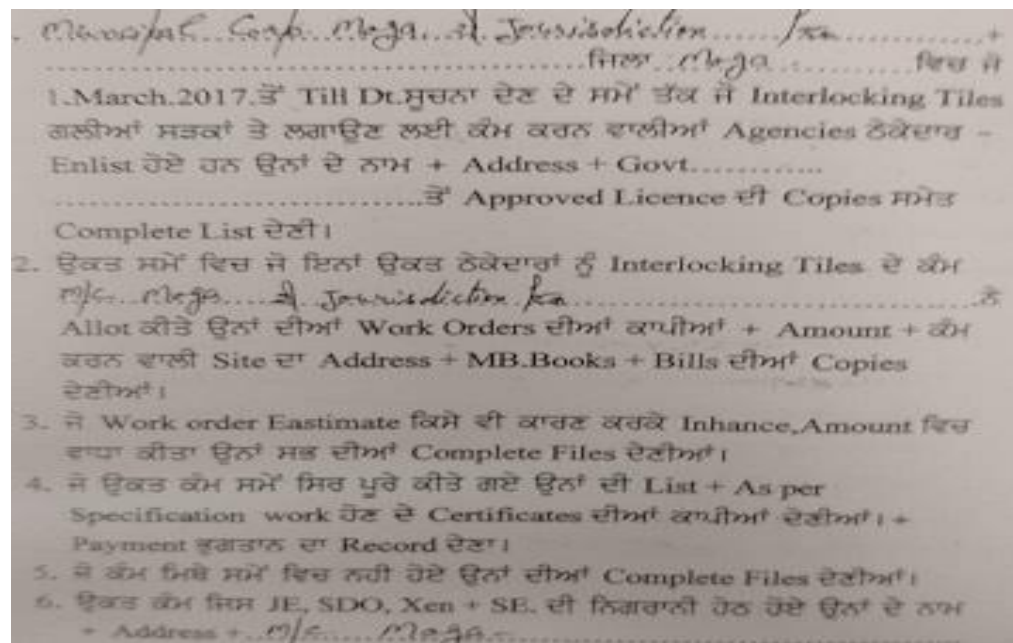 . Municipal Corp. Moga. Jourisdiction
ਜਿਲਾ Moga ਵਿਚ ਜੋ
1.March.2017.ਤੋਂ Till Dt.ਸੂਚਨਾ ਦੇਣ ਦੇ ਸਮੇਂ ਤੱਕ ਜੋ Interlocking Tiles
ਗਲੀਆਂ ਸੜਕਾਂ ਤੇ ਲਗਾਉਣ ਲਈ ਕੰਮ ਕਰਨ ਵਾਲੀਆਂ Agencies ਠੇਕੇਦਾਰ –
Enlist ਹੋਏ ਹਨ ਉਨਾਂ ਦੇ ਨਾਮ + Address + Govt............
..................................ਤੋਂ Approved Licence ਦੀ Copies ਸਮੇਤ
Complete List ਦੇਣੀ।
2. ਉਕਤ ਸਮੇਂ ਵਿਚ ਜੋ ਇਨਾਂ ਉਕਤ ਠੇਕੇਦਾਰਾਂ ਨੂੰ Interlocking Tiles ਦੇ ਕੰਮ
M/c. Moga Jourisdiction ਨੇ
Allot ਕੀਤੇ ਉਨਾਂ ਦੀਆਂ Work Orders ਦੀਆਂ ਕਾਪੀਆਂ + Amount + ਕੰਮ
ਕਰਨ ਵਾਲੀ Site ਦਾ Address + MB.Books + Bills ਦੀਆਂ Copies
ਦੇਣੀਆਂ।
3. ਜੋ Work order Eastimate ਕਿਸੇ ਵੀ ਕਾਰਣ ਕਰਕੇ Inhance,Amount ਵਿਚ
ਵਾਧਾ ਕੀਤਾ ਉਨਾਂ ਸਭ ਦੀਆਂ Complete Files ਦੇਣੀਆਂ।
4. ਜੋ ਉਕਤ ਕੰਮ ਸਮੇਂ ਸਿਰ ਪੂਰੇ ਕੀਤੇ ਗਏ ਉਨਾਂ ਦੀ List + As per
Specification work ਹੋਣ ਦੇ Certificates ਦੀਆਂ ਕਾਪੀਆਂ ਦੇਣੀਆਂ। +
Payment ਭੁਗਤਾਨ ਦਾ Record ਦੇਣਾ।
5. ਜੋ ਕੰਮ ਮਿਥੇ ਸਮੇਂ ਵਿਚ ਨਹੀ ਹੋਏ ਉਨਾਂ ਦੀਆਂ Complete Files ਦੇਣੀਆਂ।
6. ਉਕਤ ਕੰਮ ਜਿਸ JE, SDO, Xen + SE. ਦੀ ਨਿਗਰਾਨੀ ਹੇਠ ਹੋਏ ਉਨਾਂ ਦੇ ਨਾਮ
+ Address + M/c. Moga